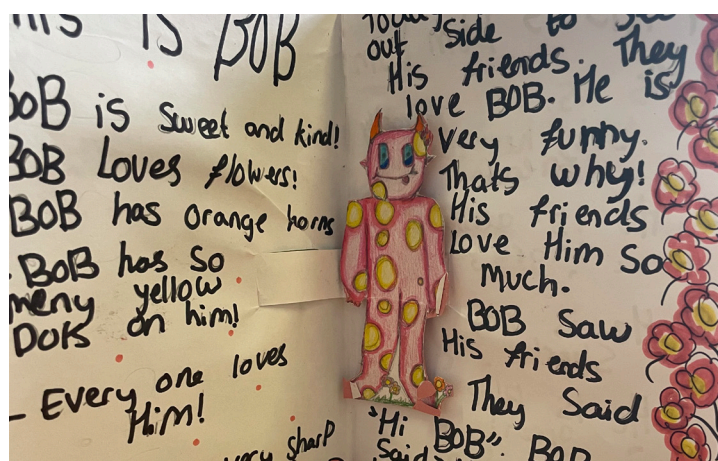 THIS IS BOB
BOB is sweet and kind!
BOB Loves flowers!
BOB has orange horns
- BOB has so
meny yellow
DOTS on him!
- Every one loves
Him!
very sharp
out side to
His friends. They
love BOB. He is
very funny.
Thats why!
His friends
Love Him So
Much.
BOB Saw
His friends
They Said
"Hi BOB". BOB
Said